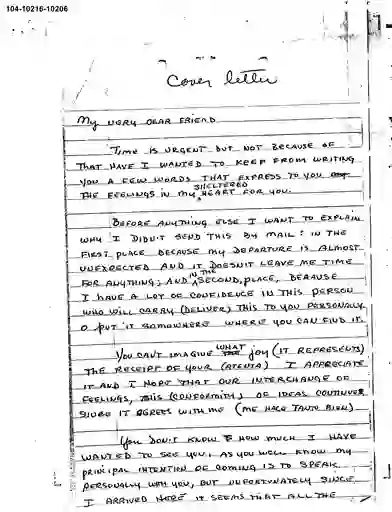 104-10216-10206
Cover letter
My very dear friend
Time is urgent but not because of
that have I wanted to keep from writing
you a few words that express to you
the feelings in my sheltered heart for you.
Before anything else I want to explain
why I didn't send this by mail: in the
first place because my departure is almost
unexpected and it doesn't leave me time
for anything; and in the second, place, because
I have a lot of confidence in this person
who will carry (deliver) this to you personally
o put it somewhere where you can find it.
You can't imagine what joy (it represents)
the receipt of your (atenta) I appreciate
it and I hope that our interchange of
feelings, this (conformity) of ideas continues
since it agrees with me (me hace tanto bien)
You don't know how much I have
wanted to see you. As you well know my
principal intention of coming is to speak
personally with you, but unfortunately since
I arrived here it seems that all the